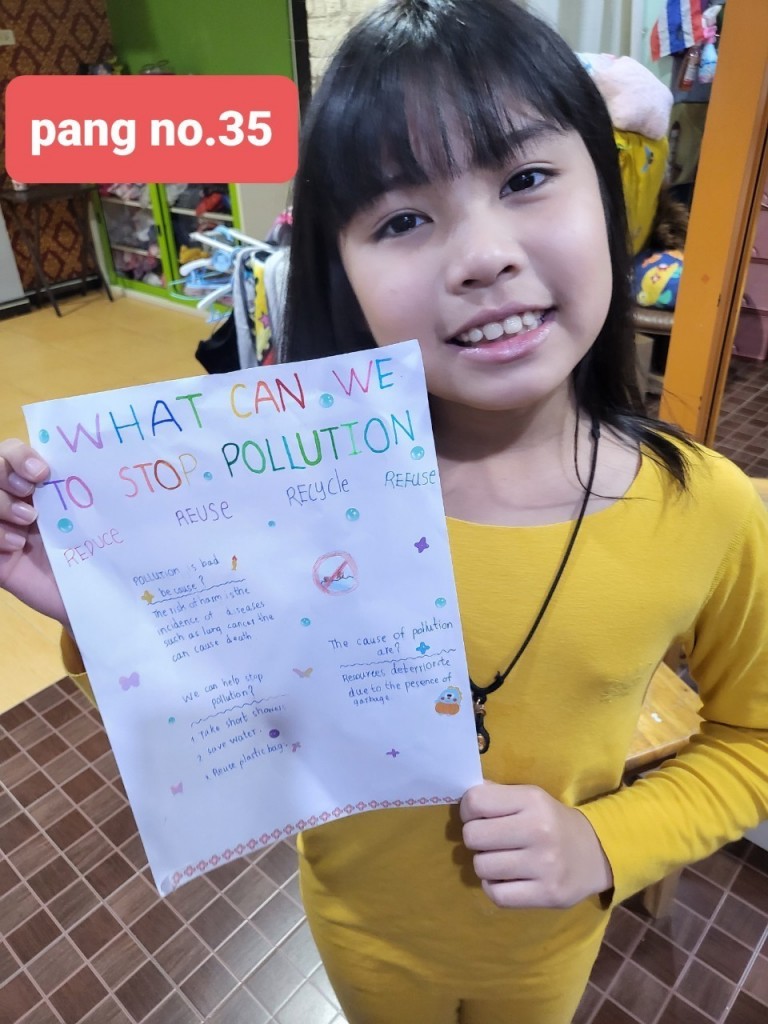 pang no.35
WHAT CAN WE
TO STOP POLLUTION
REDUCE REUSE RECYCLE REFUSE
pollution is bad
because?
The risk of harm is the
incidence of diseases
such as lung cancer the
can cause death
The cause of pollution
are?
Resources deteriorate
due to the pesence of
garbage
We can help stop
pollution?
1 Take short showers
2 save water.
Reuse plastic bag.